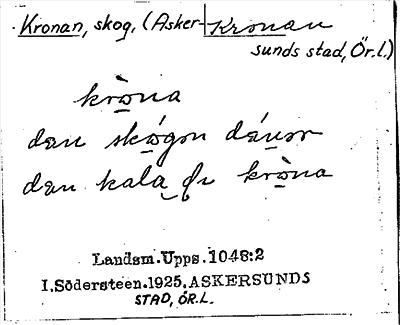 Kronan, skog, (Asker- Kronan
sunds stad, Ör.l.)
kròna
dæn skógen dá
dæn kala kròna
Landsm.Upps.1048:2
I.Södersteen.1925.ASKERSUNDS
STAD, ÖR.L.